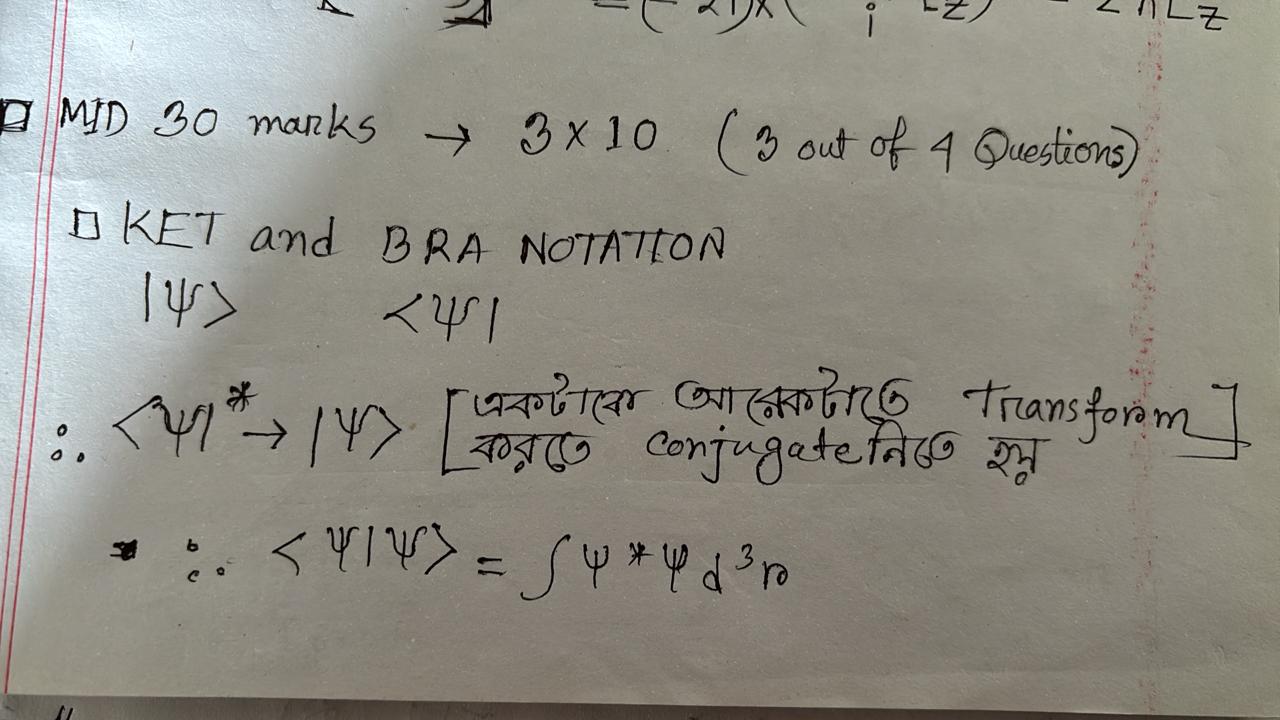 = (-2i) × ( i Lz) 2ħLz
□ MID 30 marks → 3 × 10 (3 out of 4 Questions)
□ KET and BRA NOTATION
|Ψ> <Ψ|
∴ <Ψ|* → |Ψ> [একটাকে আরেকটাতে Transform
করতে conjugate নিতে হয়]
∴ <Ψ|Ψ> = ∫Ψ*Ψ d³r